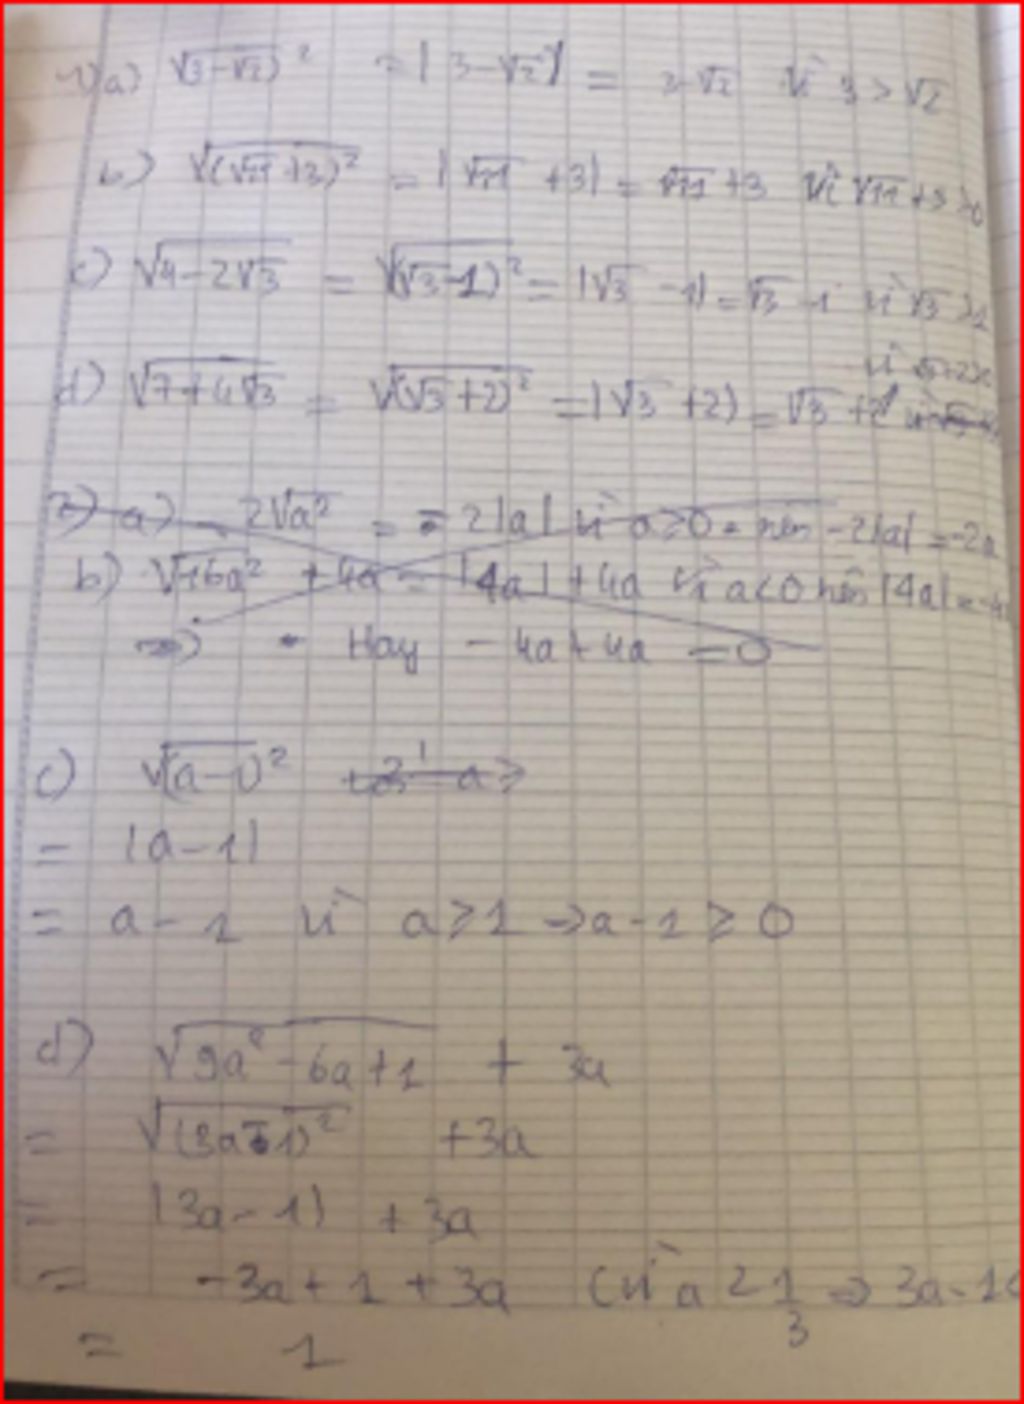 1) a) √(3-√2)² = |3-√2| = 3-√2 vì 3 > √2
b) √(√11+3)² = |√11 +3| = √11 +3 vì √11 +3 >0
c) √4-2√3 = √(√3-1)² = |√3 -1| = √3 -1 vì √3 >1
d) √7+4√3 = √(√3+2)² = |√3 +2) = √3 +2
2) a) 2√a² = 2|a| vì a>0 nên -2|a| = -2a
b) √16a² + 4a = |4a| + 4a Vì a<0 nên |4a| = -4
Hay - 4a + 4a = 0
c) √(a-1)²
= |a-1|
= a - 1 vì a ≥ 1 → a - 1 ≥ 0
d) √9a² - 6a + 1 + 3a
= √(3a-1)² +3a
= |3a-1) + 3a
= -3a + 1 + 3a (vì a 2 1/3 ⇒ 3a-1<
= 1